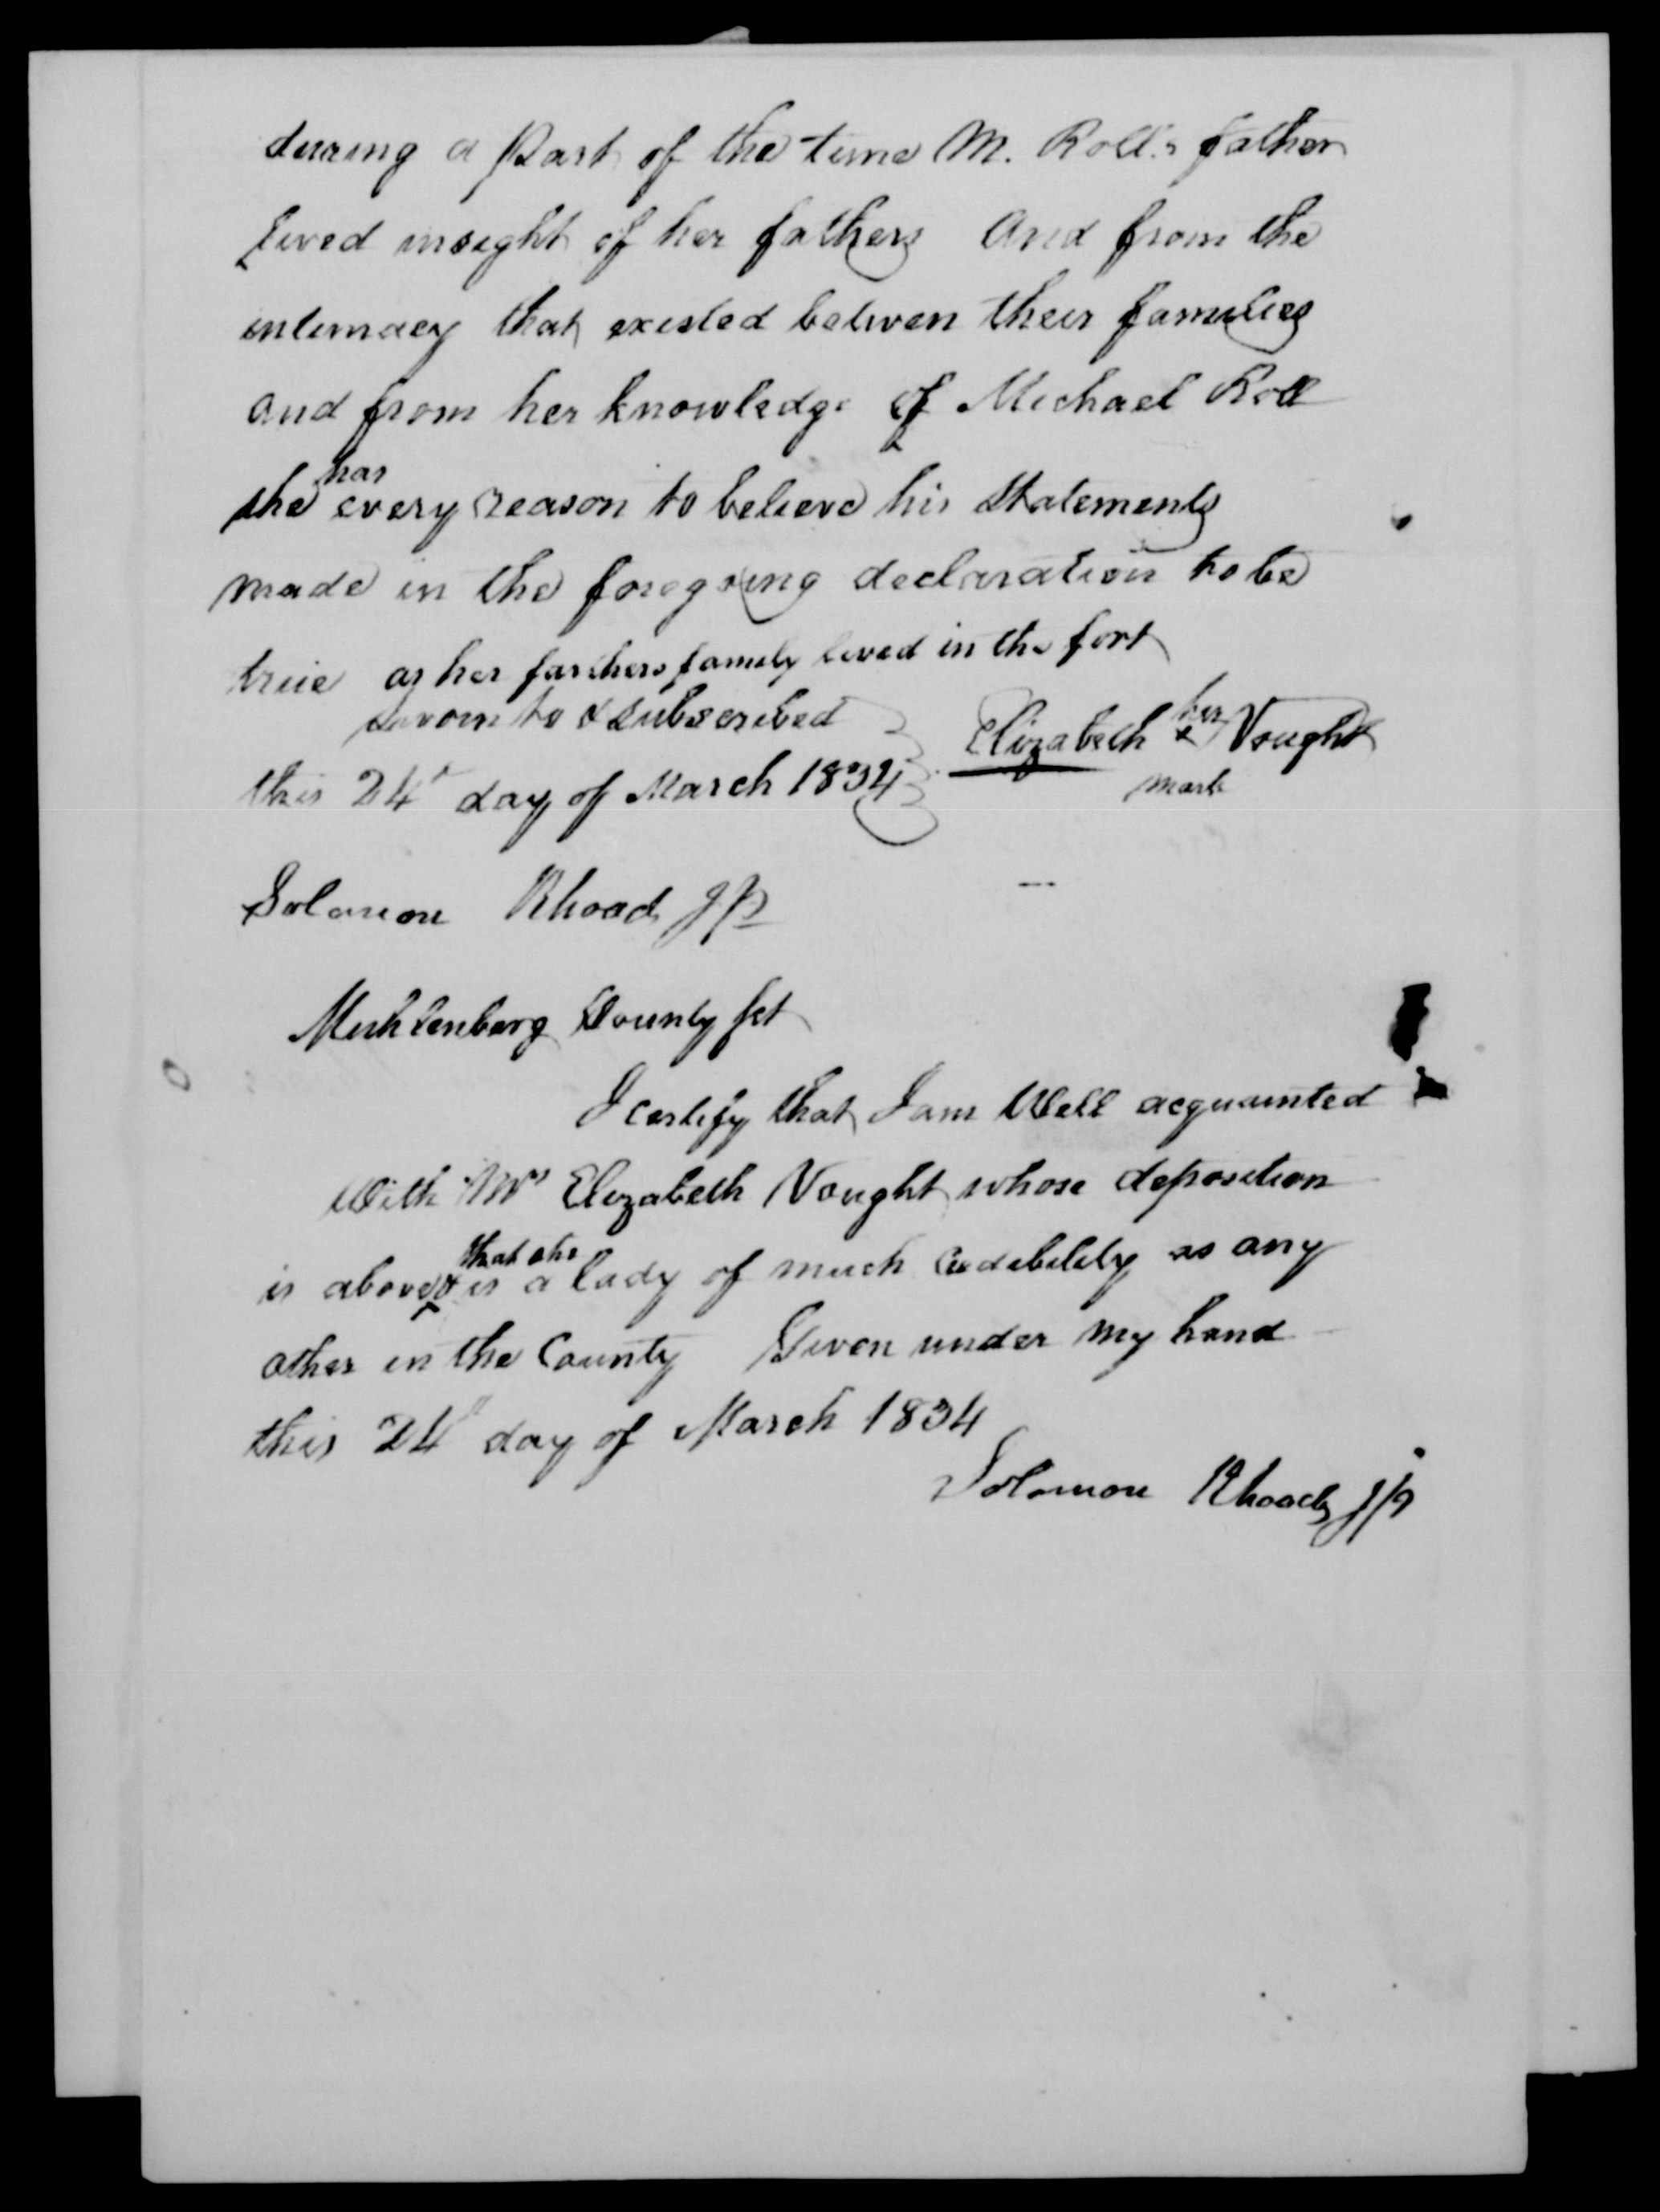 during a Part of the time M. Rolls father
lived insight of her fathers And from the
intimacy that existed betwen their families
and from her knowledge of Michael Roll
she has every reason to believe his Statements
made in the foregoing declaration to be
true as her farthers family lived in the fort
Sworn to & subscribed
this 24th day of March 1834
Elizabeth her x Vought
mark
Solomon Rhoads JP
Muhlenberg County Sct
I certify that I am Well acquainted
With Mrs Elizabeth Vought whose deposition
is above & that she is a lady of much Credibility as any
other in the County Given under my hand
this 24th day of March 1834
Solomon Rhoads JP